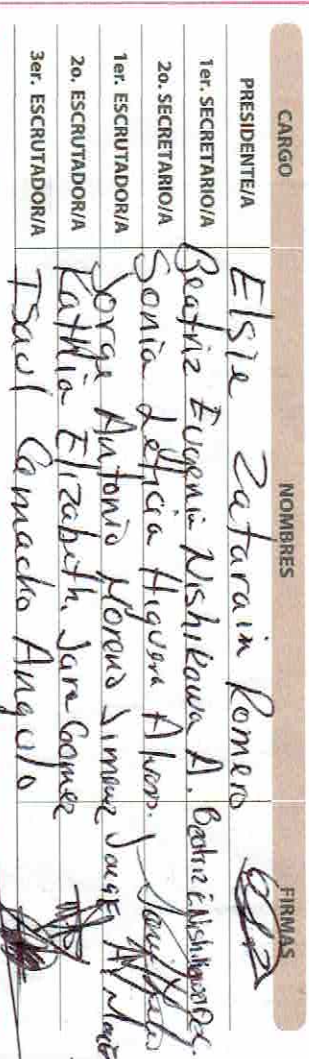 CARGO NOMBRES FIRMAS
PRESIDENTE/A Elsie Zatarain Romero
1er. SECRETARIO/A Beatriz Eugenia Nishikawa A. Beatriz E. Nishikawa
2o. SECRETARIO/A Sonia Leticia Higuera
1er. ESCRUTADOR/A Jorge Antonio Moreno Jimenez Jorge A. Moreno
2o. ESCRUTADOR/A Kathia Elizabeth Jara Gomez
3er. ESCRUTADOR/A Isaul Camacho Angulo